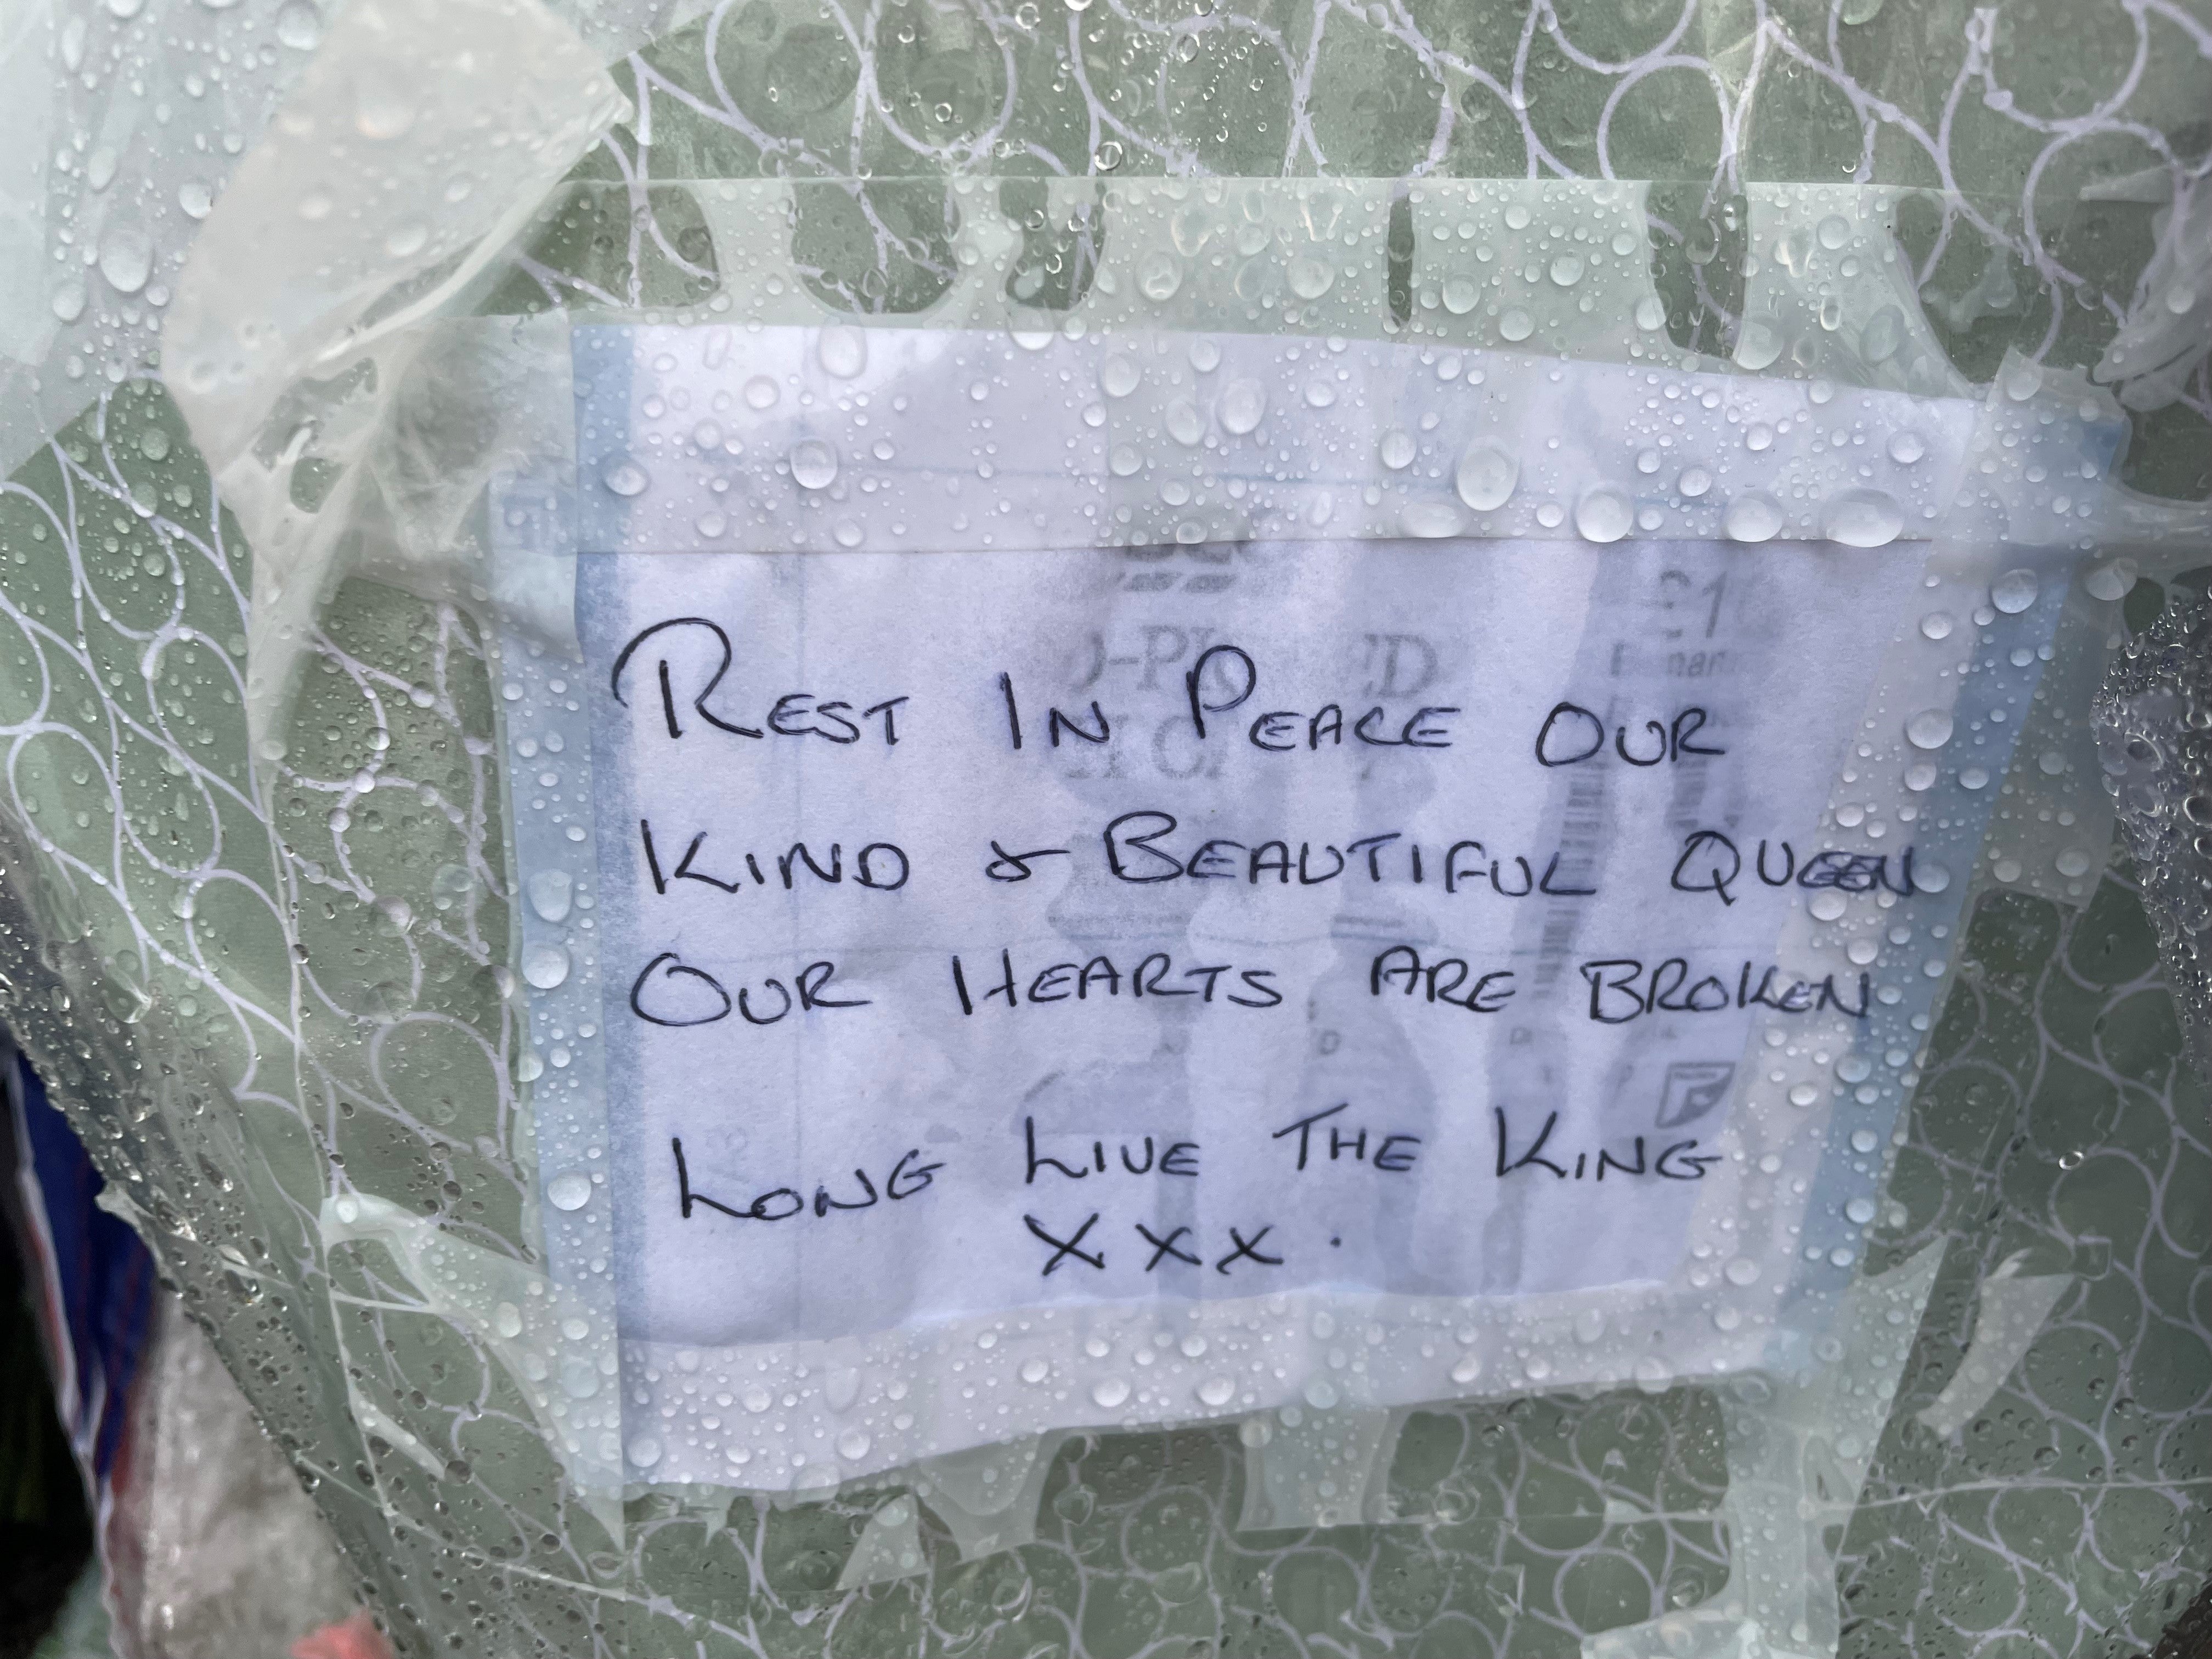 REST IN PEACE OUR
KIND & BEAUTIFUL QUEEN
OUR HEARTS ARE BROKEN
LONG LIVE THE KING
XXX.